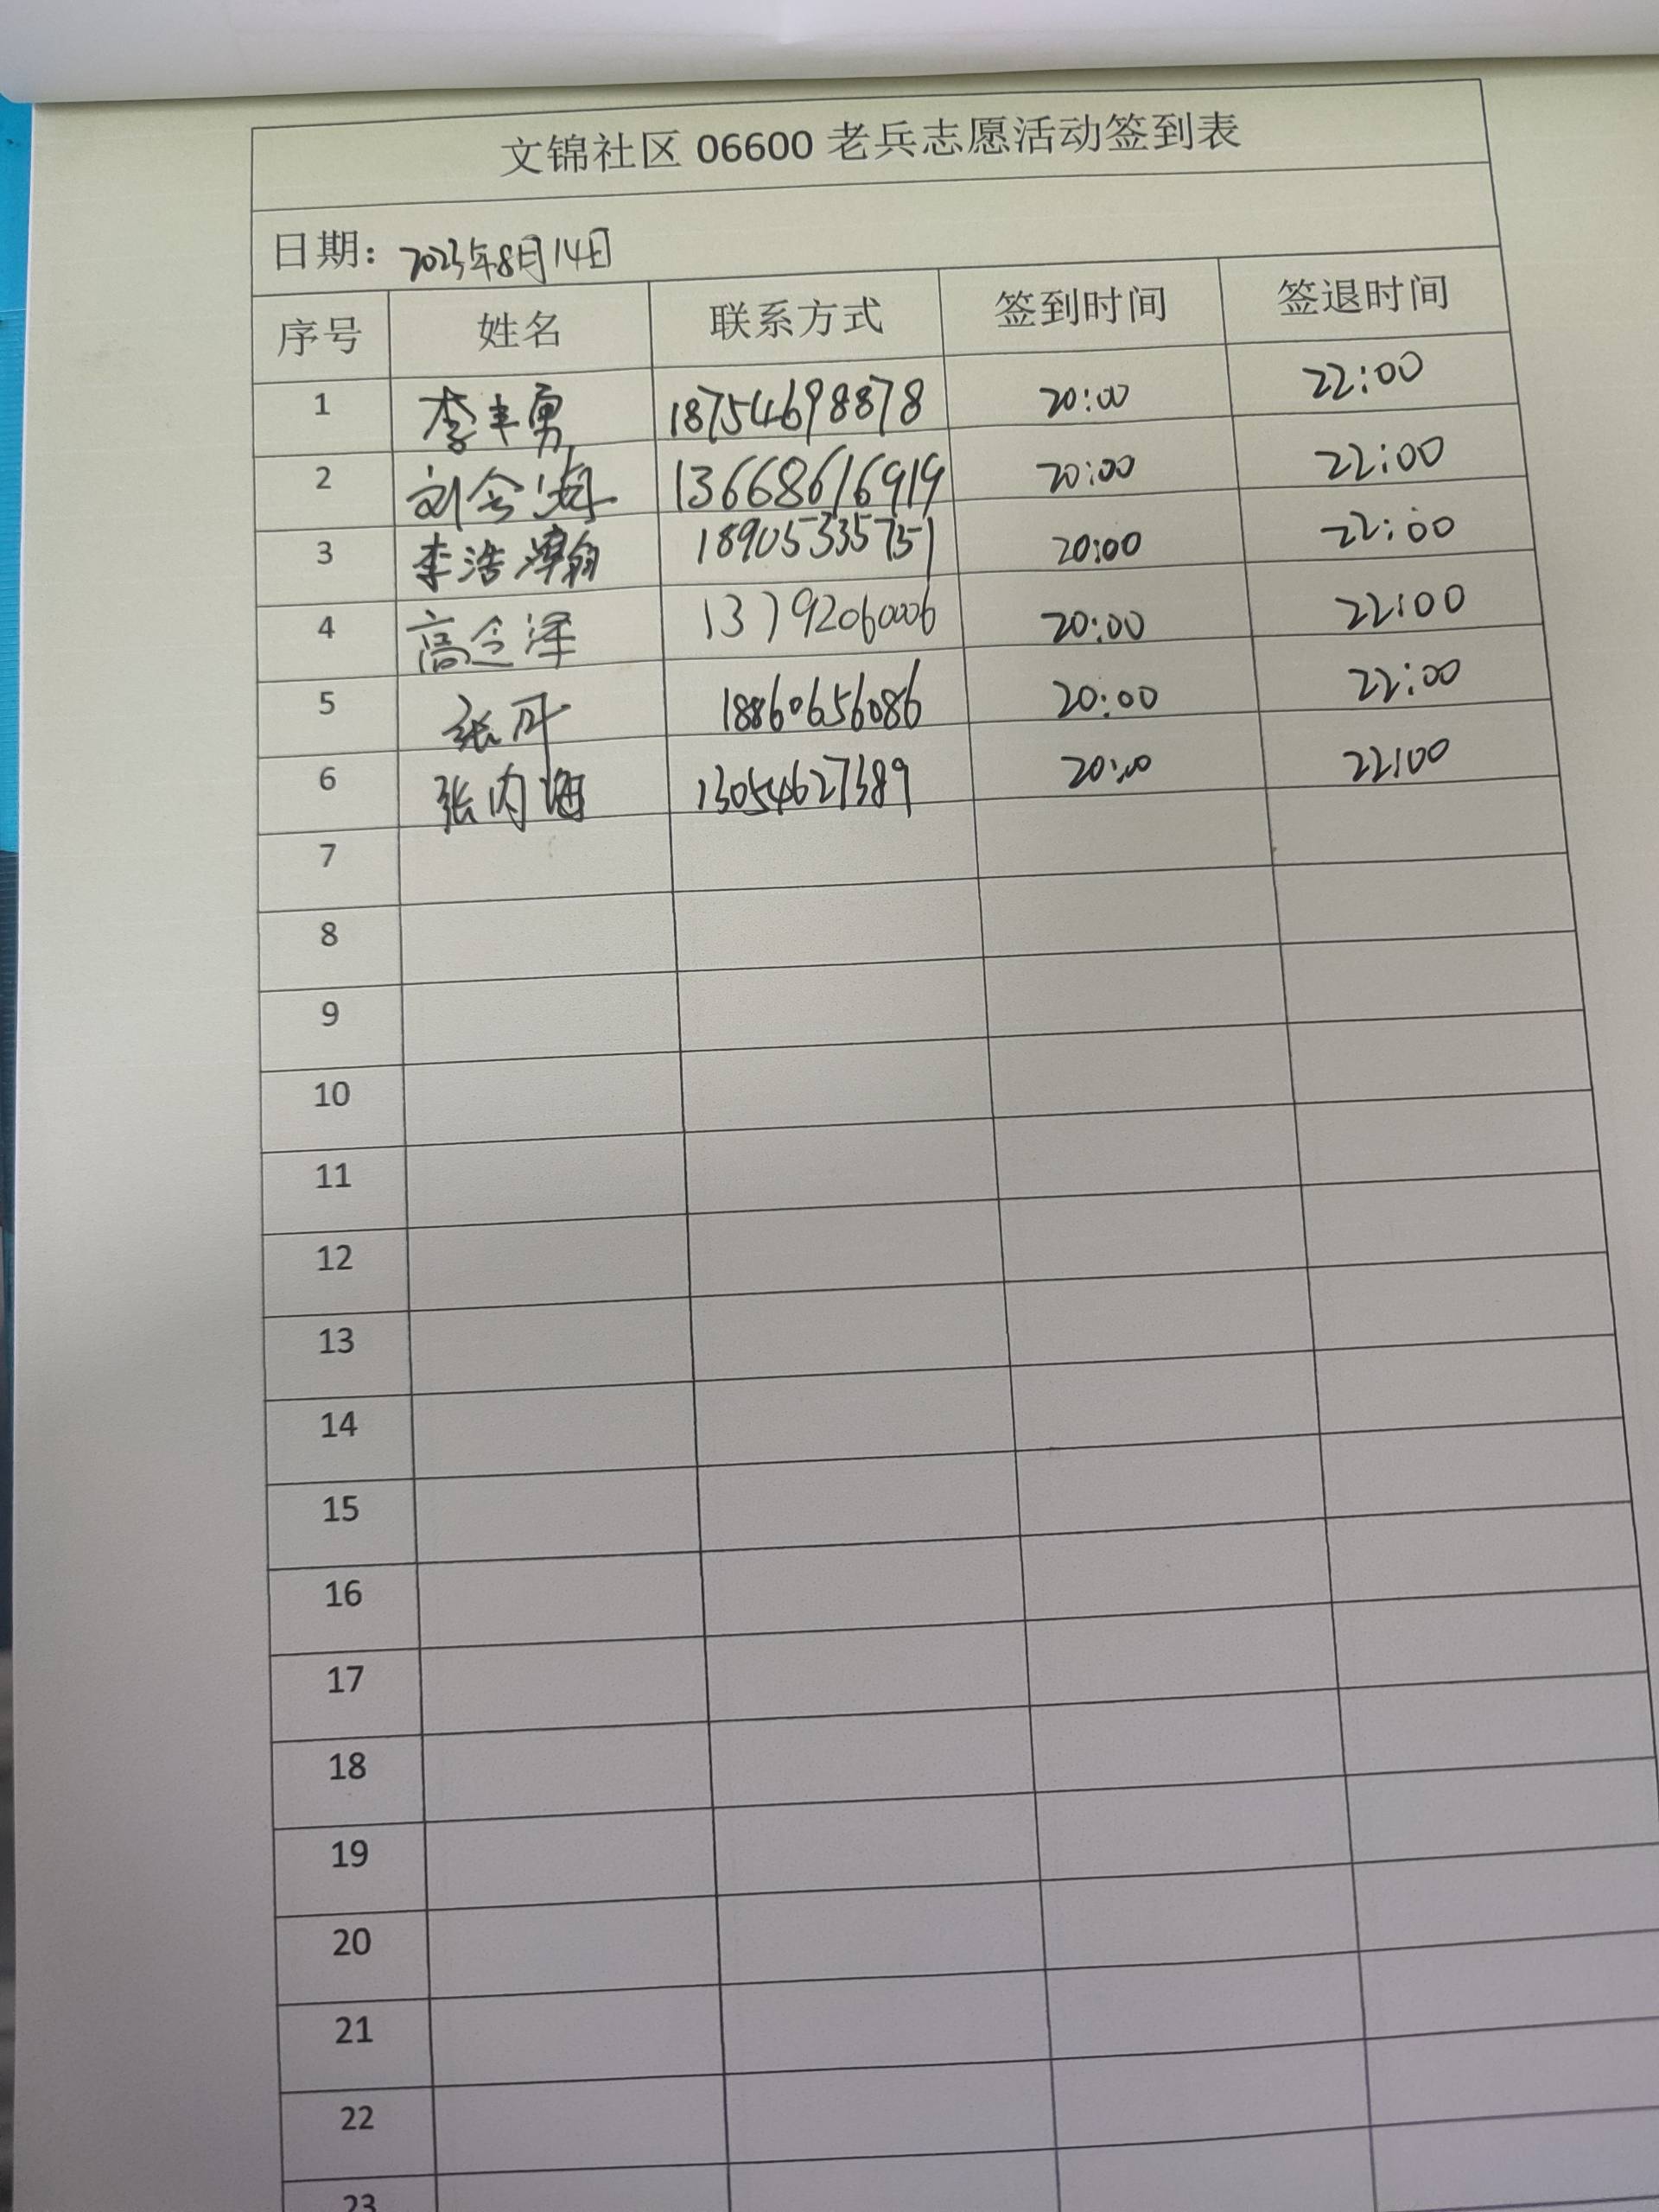 文锦社区 06600 老兵志愿活动签到表
日期: 2023年8月14日
序号 姓名 联系方式 签到时间 签退时间
1 李丰勇 18754698878 20:00 22:00
2 刘会海 13668616919 20:00 22:00
3 李浩瀚 18905335751 20:00 22:00
4 高念泽 13792060006 20:00 22:00
5 张丹 18860656086 20:00 22:00
6 张内海 13054627389 20:00 22:00
7
8
9
10
11
12
13
14
15
16
17
18
19
20
21
22
23